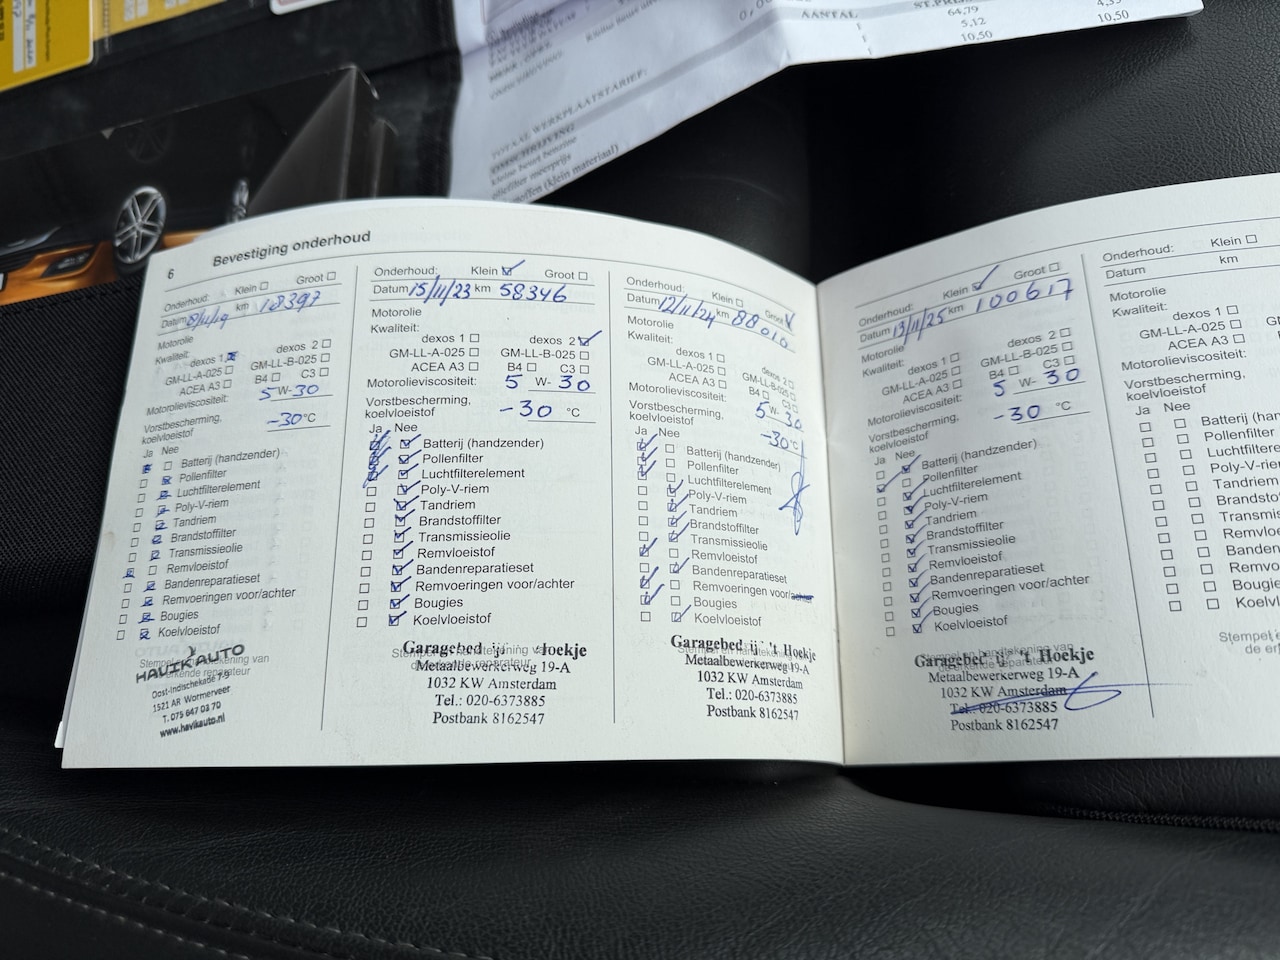 AANTAL
ST.PRIJS
64,79
5,12
10,50
4,35
10,50
TOTAAL WERKPLAATSTARIEF:
OMSCHRIJVING
kleine beurt benzine
oliefilter meerprijs
(klein materiaal)
6 Bevestiging onderhoud
Onderhoud: Klein Groot
Datum 8/11/19 km 18397
Motorolie
Kwaliteit:
dexos 1 dexos 2
GM-LL-A-025 GM-LL-B-025
ACEA A3 B4 C3
Motorolieviscositeit: 5 W-30
Vorstbescherming,
koelvloeistof -30 °C
Ja Nee
Batterij (handzender)
Pollenfilter
Luchtfilterelement
Poly-V-riem
Tandriem
Brandstoffilter
Transmissieolie
Remvloeistof
Bandenreparatieset
Remvoeringen voor/achter
Bougies
Koelvloeistof
Stempel en handtekening van
de erkende reparateur
HAVIK AUTO
Oost-Indischekade 7-9
1521 AR Wormerveer
T. 075 647 03 70
www.havikauto.nl
Onderhoud: Klein Groot
Datum 15/11/23 km 58346
Motorolie
Kwaliteit:
dexos 1 dexos 2
GM-LL-A-025 GM-LL-B-025
ACEA A3 B4 C3
Motorolieviscositeit: 5 W- 30
Vorstbescherming,
koelvloeistof -30 °C
Ja Nee
Batterij (handzender)
Pollenfilter
Luchtfilterelement
Poly-V-riem
Tandriem
Brandstoffilter
Transmissieolie
Remvloeistof
Bandenreparatieset
Remvoeringen voor/achter
Bougies
Koelvloeistof
Stempel en handtekening van
de erkende reparateur
Garagebedrij 't Hoekje
Metaalbewerkerweg 19-A
1032 KW Amsterdam
Tel.: 020-6373885
Postbank 8162547
Onderhoud: Klein Groot
Datum 12/11/24 km 88010
Motorolie
Kwaliteit:
dexos 1 dexos 2
GM-LL-A-025 GM-LL-B-025
ACEA A3 B4 C3
Motorolieviscositeit: 5 W- 30
Vorstbescherming,
koelvloeistof -30 °C
Ja Nee
Batterij (handzender)
Pollenfilter
Luchtfilterelement
Poly-V-riem
Tandriem
Brandstoffilter
Transmissieolie
Remvloeistof
Bandenreparatieset
Remvoeringen voor/achter
Bougies
Koelvloeistof
Stempel en handtekening van
Garagebedrij 't Hoekje
Metaalbewerkerweg 19-A
1032 KW Amsterdam
Tel.: 020-6373885
Postbank 8162547
Onderhoud: Klein Groot
Datum 13/11/25 km 100617
Motorolie
Kwaliteit:
dexos 1 dexos 2
GM-LL-A-025 GM-LL-B-025
ACEA A3 B4 C3
Motorolieviscositeit: 5 W- 30
Vorstbescherming,
koelvloeistof -30 °C
Ja Nee
Batterij (handzender)
Pollenfilter
Luchtfilterelement
Poly-V-riem
Tandriem
Brandstoffilter
Transmissieolie
Remvloeistof
Bandenreparatieset
Remvoeringen voor/achter
Bougies
Koelvloeistof
Stempel en handtekening van
de erkende reparateur
Garagebedrij 't Hoekje
Metaalbewerkerweg 19-A
1032 KW Amsterdam
Tel.: 020-6373885
Postbank 8162547
Onderhoud: Klein
Datum km
Motorolie
Kwaliteit:
dexos 1
GM-LL-A-025
ACEA A3
Motorolieviscositeit:
Vorstbescherming,
koelvloeistof
Ja Nee
Batterij (
Pollenfilter
Luchtfilterelem
Poly-V-riem
Tandriem
Brandsto
Transmis
Remvloe
Banden
Remvo
Bougie
Koelvl
Stempel
de er